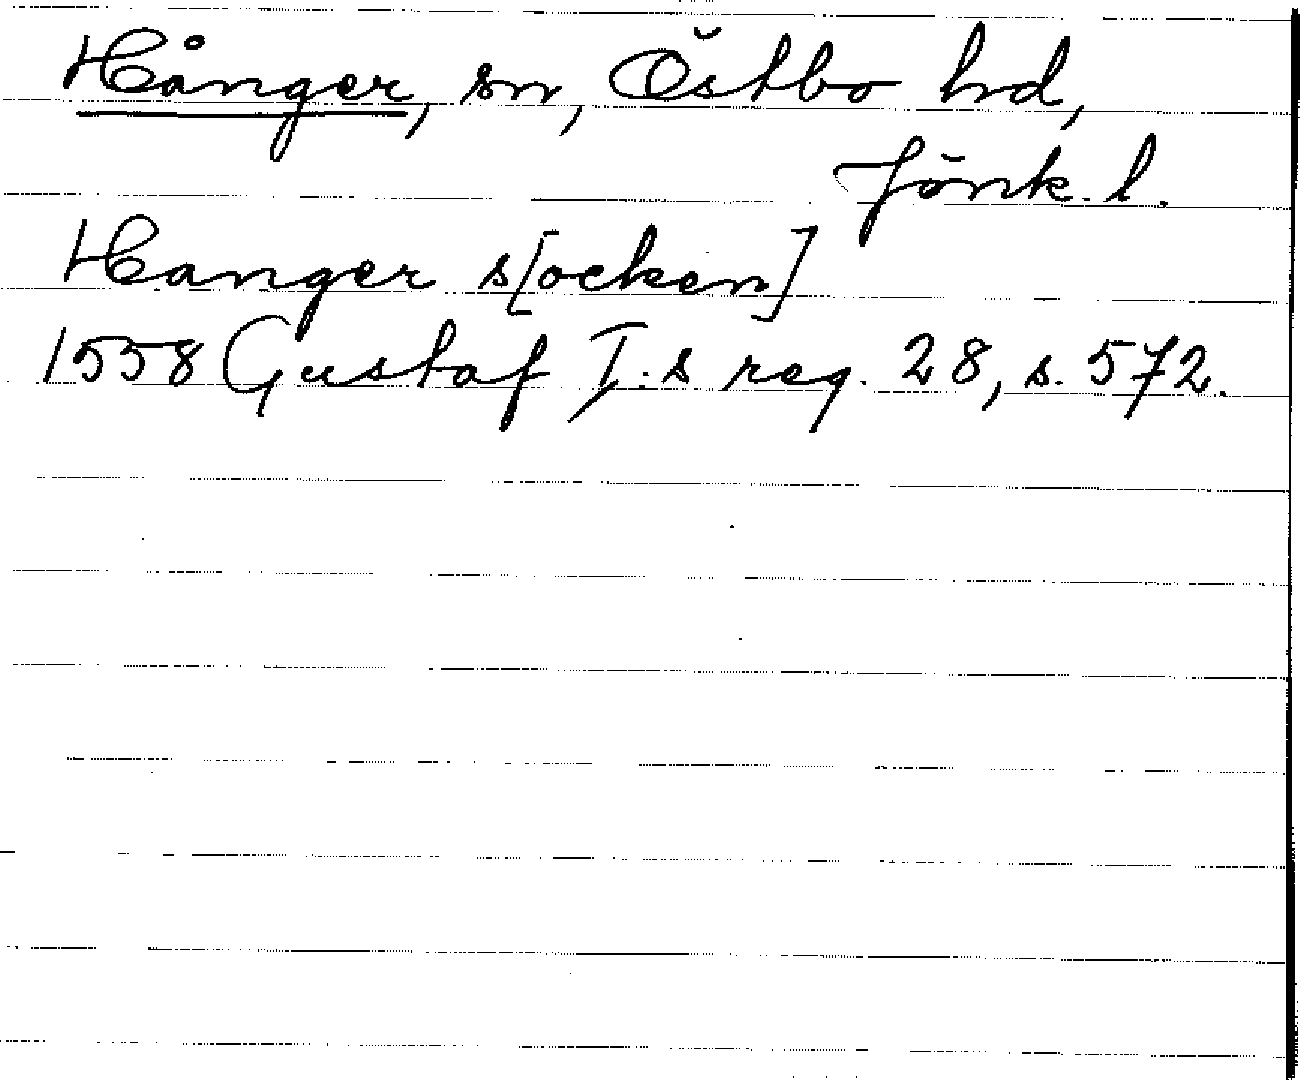 Hånger, sn, Östbo hd,
Jönk. l.
Hanger s[ocken]
1558 Gustaf I:s reg. 28, s. 572.